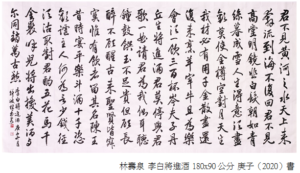 君不見黃河之水天上來
奔流到海不復回君不見
高堂明鏡悲白髮朝如青
絲暮成雪人生得意須盡
歡莫使金樽空對月天生
我材必有用千金散盡還
復來烹羊宰牛且為樂
會須一飲三百杯岑夫子丹
丘生將進酒君莫停與君
歌一曲請君為我側耳聽
鐘鼓饌玉不足貴但願長
醉不願醒古來聖賢皆寂
寞惟有飲者留其名陳王
昔時宴平樂斗酒十千恣
歡謔主人何為言少錢徑須
沽取對君酌五花馬千
金裘呼兒將出換美酒與
爾同銷萬古愁
林壽泉 李白將進酒 180x90公分 庚子（2020）書